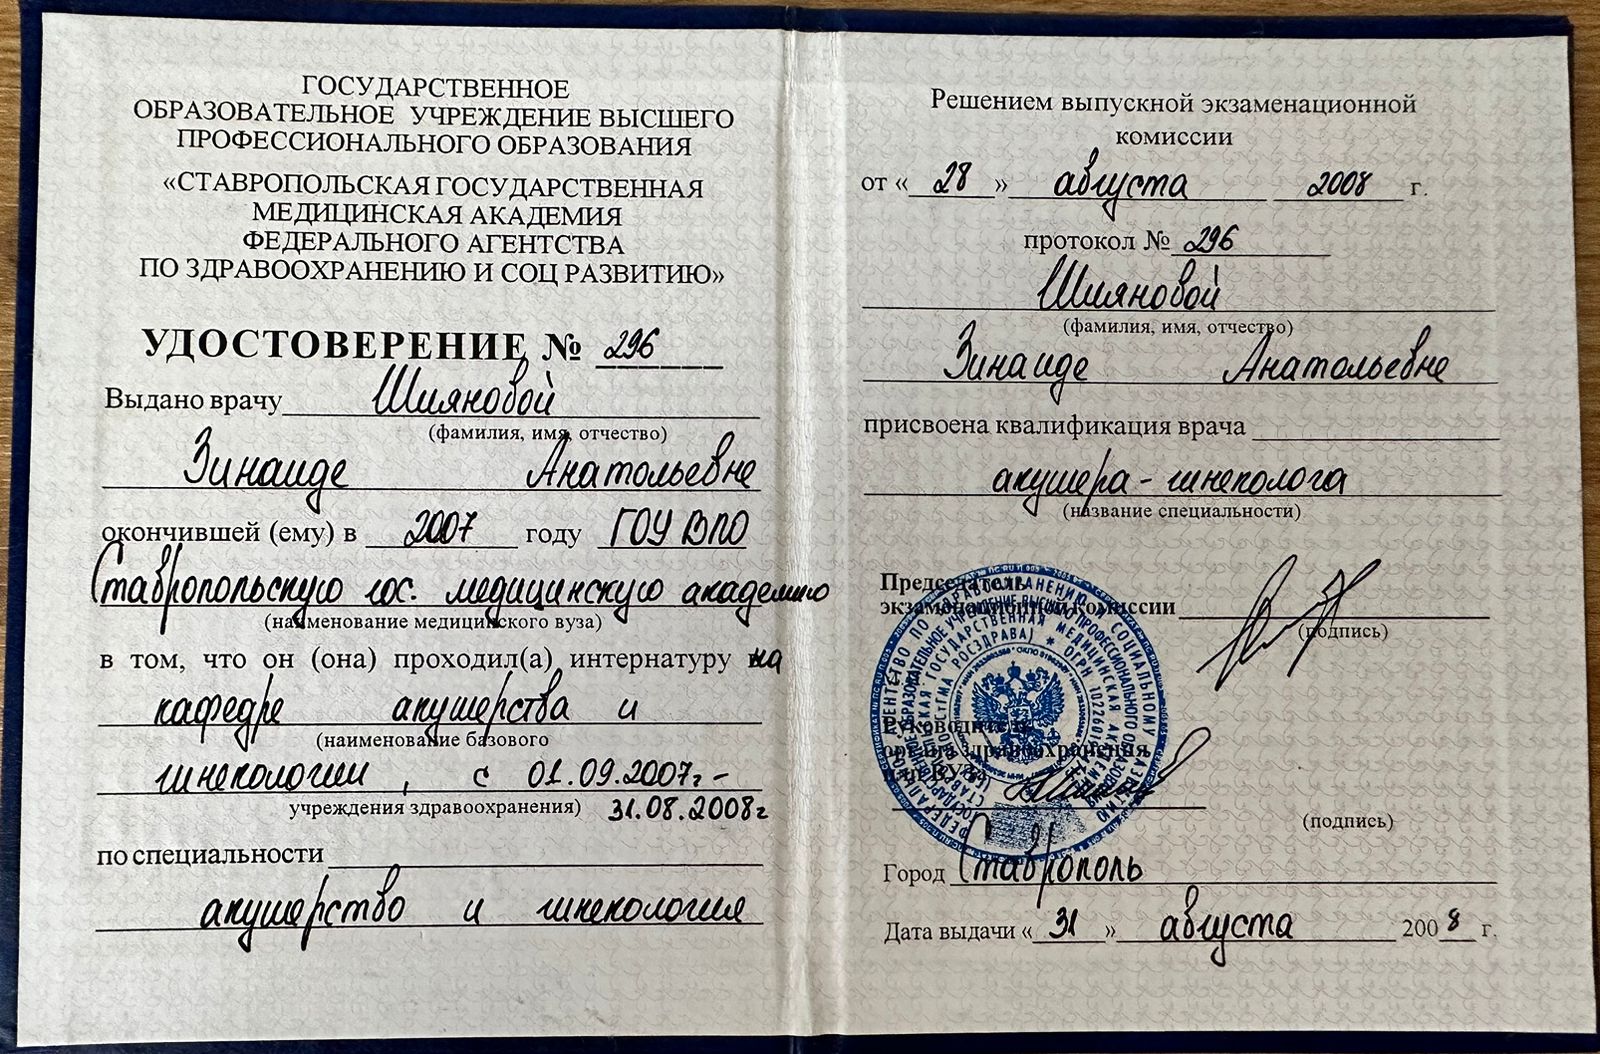 ГОСУДАРСТВЕННОЕ
ОБРАЗОВАТЕЛЬНОЕ УЧРЕЖДЕНИЕ ВЫСШЕГО
ПРОФЕССИОНАЛЬНОГО ОБРАЗОВАНИЯ
«СТАВРОПОЛЬСКАЯ ГОСУДАРСТВЕННАЯ
МЕДИЦИНСКАЯ АКАДЕМИЯ
ФЕДЕРАЛЬНОГО АГЕНТСТВА
ПО ЗДРАВООХРАНЕНИЮ И СОЦ РАЗВИТИЮ»
УДОСТОВЕРЕНИЕ № 296
Выдано врачу Шияновой
(фамилия, имя, отчество)
Зинаиде Анатольевне
окончившей (ему) в 2007 году ГОУ ВПО
Ставропольскую гос. медицинскую академию
(наименование медицинского вуза)
в том, что он (она) проходил(а) интернатуру на
кафедре акушерства и
(наименование базового
гинекологии, с 01.09.2007г-
учреждения здравоохранения) 31.08.2008г
по специальности
акушерство и гинекология
Решением выпускной экзаменационной
комиссии
от «28» августа 2008 г.
протокол № 296
Шияновой
(фамилия, имя, отчество)
Зинаиде Анатольевне
присвоена квалификация врача
акушера-гинеколога
(название специальности)
Председатель
экзаменационной комиссии
(подпись)
Руководитель
органа здравоохранения
или ВУЗа
(подпись)
Город Ставрополь
Дата выдачи «31» августа 2008 г.